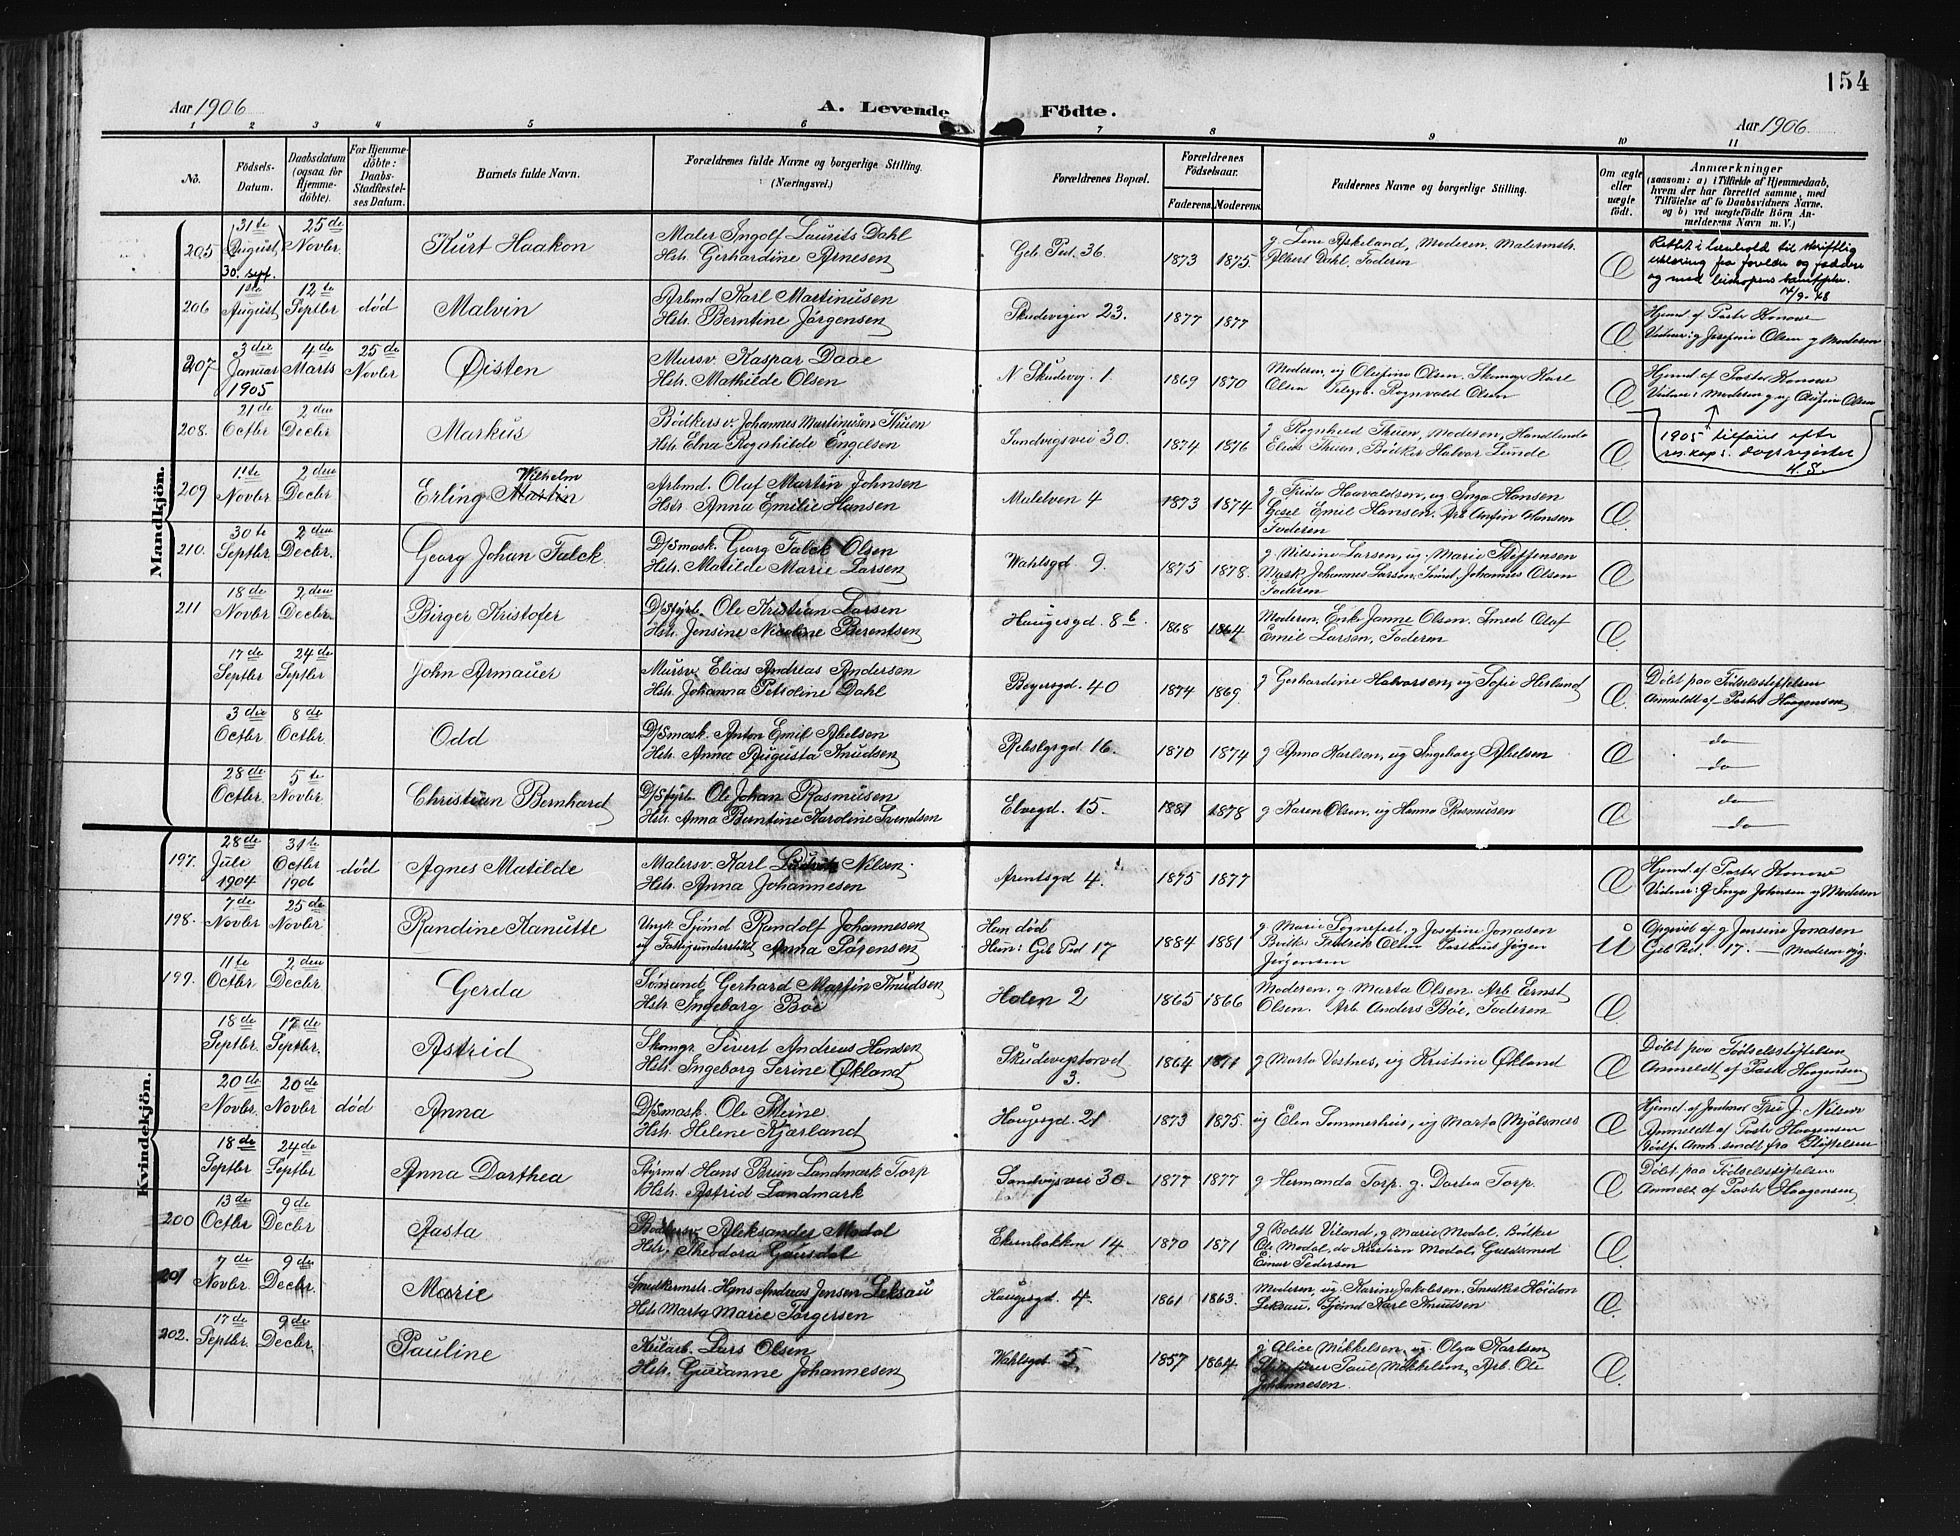 154
Aar 1906
A. Levende Födte.
Aar 1906
1 2 3 4 5 6 7 8 9 10 11
No.
Födsels-Datum.
Daabsdatum (ogsaa for Hjemmedöbte).
For Hjemmedöbte: Daabs-Stadfæstelses Datum.
Barnets fulde Navn.
Forældrenes fulde Navne og borgerlige Stilling. (Næringsvei.)
Forældrenes Bopæl.
Forældrenes Födselsaar.
Faderens. Moderens.
Faddernes Navne og borgerlige Stilling.
Om ægte eller uægte födt.
Anmærkninger
(saasom: a) i Tilfælde af Hjemmedaab,
hvem der har forrettet samme, med
Tilföielse af to Daabsvidners Navne.
og b) ved uægtefödte Börn Anmelderens Navn m. V.)
Mandkjön.
205 31te August 30. sept. 25de Novbr Kurt Haakon
Maler Ingolf Laurits Dahl
Hstr. Gerhardine Arnesen
Geb Ped. 36. 1873 1875.
g. Lene Askeland, Moderen, Malermstr.
Albert Dahl, Faderen
Æ
Rettet i henhold til skriftlig
erklæring fra foreldre og faddere
og med biskopens samtykke.
206 1ste August 12te Septbr død Malvin
Arbmd Karl Martinusen
Hstr. Berntine Jörgensen
Skudevigen 23. 1877 1877 Æ
Hjemd af Pastor Konow
Vidner: g Josefine Olsen g Moderen
207 3die Januar 1905 4de Marts 25de Novbr Øisten
Mursv Kaspar Daae
Hstr. Mathilde Olsen
N Skudevig. 1 1869 1870
Moderen, ug Olefine Olsen. Skomag Karl
Olsen Telegrb. Rognvald Olsen
Æ
Hjemd af Pastor Konow
Vidner: Moderen g og Olefine Olsen
208. 21de Octbr 2den Decbr Markus
Bödkersv. Johannes Martinusen Thuen
Hstr Elna Rogshilde Engelsen
Sandvigsvei 30. 1874 1876
g Rognhild Thuen, Moderen, Handlende
Elias Thuen, Bödker Halvor Lunde
Æ
1905 tilføiet efter
209 1ste Novbr 2den Decbr Erling Martin Wilhelm
Arbmd. Olaf Martin Johnsen
Hstr. Anna Emilie Hansen
Møllelven 4 1873 1874
g Frida Haavaldsen, ug Inga Hansen
Gesel Emil Hansen. Arb Anfin Hansen
Faderen
Æ
210. 30te Septbr 2den Decbr. Georg Johan Falck
D/Smask. Georg Falck Olsen
Hstr. Matilde Marie Larsen
Wahlsgd 9. 1875 1878.
g. Nilsine Larsen, ug. Marie Steffensen
Mask Johannes Larsen, Smed, Johannes Olsen
Faderen
Æ
211 18de Novbr 2den Decbr. Birger Kristofer
D/Styrb. Ole Kristian Larsen
Hstr. Jensine Nicoline Berentsen
Haugesgd. 8b. 1868 1864
Moderen, Enke Janne Olsen. Smed Olaf
Emil Larsen, Faderen
Æ
17de Septbr 24de Septbr John Armauer
Mursv. Elias Andreas Andersen
Hstr. Johanna Petroline Dahl
Beyersgd. 40 1874 1869.
g Gerhardine Halvorsen, ug Sofie Herland
Æ
Döbt paa Fødselsstiftelsen
Anmeldt af Pastor Haagensen
3die Octbr 8de Octbr. Odd
D/Smask. Anton Emil Abelsen
Hstr. Anna Augusta Knudsen
Rebslgrgd 16. 1870 1874
g Anna Karlsen, ug Ingeborg Abelsen
Æ
do
do
28de Octbr. 5te Novbr. Christian Bernhard
D/Styrb. Ole Johan Rasmusen
Hstr. Anna Berntine Karoline Svendsen
Elvegd. 15. 1881 1878
g Karen Olsen, ug Hanna Rasmusen
Æ
do
do
Kvindekjön.
197. 28de Juli 1904 31te Octbr 1906 død Agnes Matilde
Malersv. Karl Ludvik Nilsen.
Hstr. Anna Johannesen
Arentsgd 4. 1875 1877 Æ
Hjemd af Pastor Konow
Vidner: g Inga Johnsen g Moderen
198. 7de Novbr. 25de Novbr. Randine Kanutte
Ungk. Sjömd Randolf Johannesen
ug Fattigunderstöttet Anna Sörensen
Han død
Hun: Geb Ped 17 1884 1881
g. Marie Sognefest, g. Josefine Jonasen
Bödk: Fredrik Olsen Postbud Jörgen
Jörgensen
U
Opgivet af g Jensine Jonasen
Geb Ped. 17. — Moderen syg.
199. 11te Octbr 2den Decbr. Gerda
Sömand Gerhard Martin Knudsen
Hstr. Ingeborg Böe
Holen 2 1865 1866
Moderen, g. Marta Olsen. Arb. Ernst
Olsen. Arb. Anders Böe, Faderen
Æ
18de Septbr. 17de Septbr. Astrid
Skomgr. Sivert Andreas Hansen
Hstr. Ingeborg Serine Økland
Skudevigstorvet 3. 1864 1871
g Marta Vestnes, ug Kristine Økland
Æ
Döbt paa Fødselsstiftelsen
Anmeldt af Pastor Haagensen
20de Novbr. 20de Novbr død Anna
D/Smask. Ole Steine.
Hstr. Helene Kjærland
Haugesgd. 21 1873 1875.
ug Elen Sommerhus, ug Marta Mjölsnes
Æ
Hjemd. af Jordmor Fru J. Nilsen
Anmeldt af Pastor Haagensen
Dödsf. Anm. sendt fra Stiftelsen
18de Septbr 24de Septbr Anna Dorthea
Styrmd Hans Brun Landmark Torp
Hstr. Astrid Landmark
Sandvigsvei 30. 1877 1877
g Hermanda Torp. g. Dortea Torp.
Æ
Döbt paa Fødselsstiftelsen
Anmelt af Pastor Haagensen
200 13de Octbr 9de Decbr. Aasta
Bödkersv. Aleksander Modal
Hstr. Theodora Gausdal
Ekrenbakken 14 1870 1871
g Bolette Viland, g Marie Modal, Bödker
Ole Modal, do Kristian Modal, Guldsmed
Einar Pedersen
Æ
201 7de Novbr 9de Decbr Marie
Snedkermstr. Hans Andreas Jensen Leksau
Hstr Marta Marie Torgersen
Haugesgd. 4. 1861 1863.
Moderen, ug Karine Jakobsen. Snedker Haldon
Leksau, Sjömd Karl Knudsen
Æ
202. 17de Septbr. 9de Decbr. Pauline
Kularb. Lars Olsen
Hstr. Gurianne Johannesen
Wahlsgd 5 1857 1864
g Alice Mikkelsen, ug Olga Karlsen
Paul Mikkelsen, Arb. Ole
Johannesen.
Æ